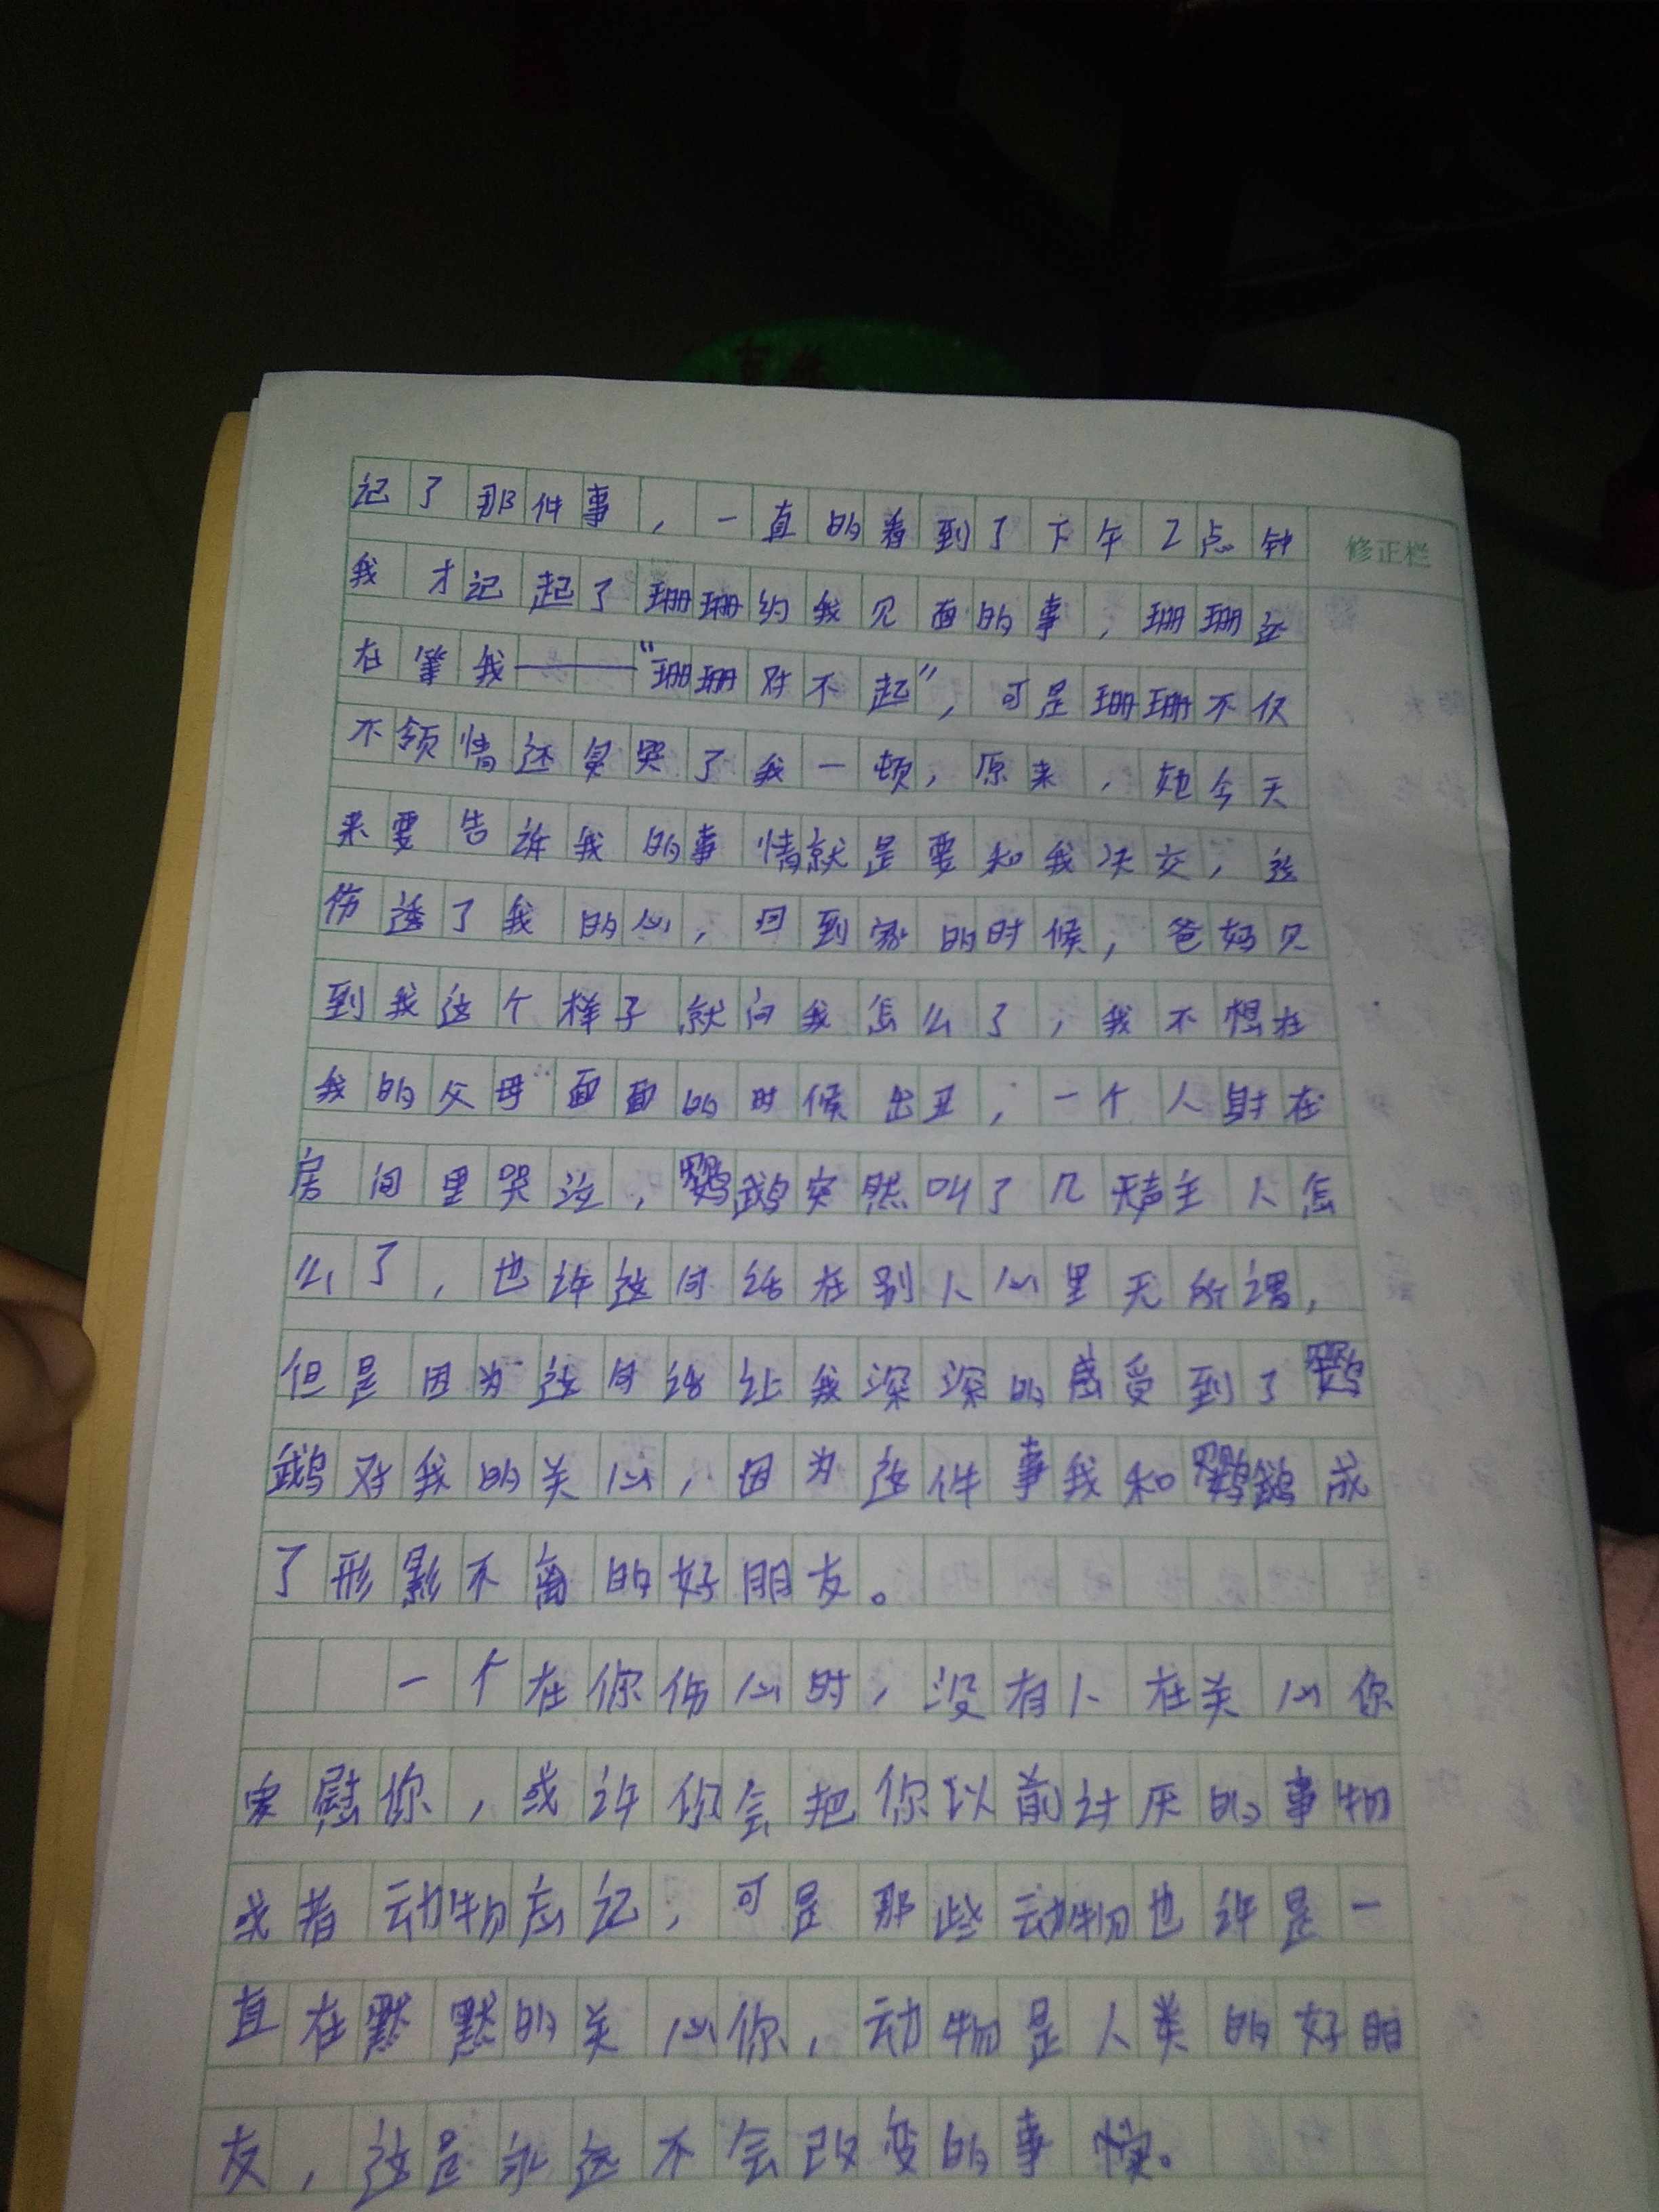 记了那件事，一直的看到了下午2点钟
修正栏
我才记起了珊珊约我见面的事，珊珊还
在等我——“珊珊对不起”，可是珊珊不仅
不领情还臭哭了我一顿，原来，她今天
来要告诉我的事情就是要和我决交，这
伤透了我的心，回到家的时候，爸妈见
到我这个样子就问我怎么了，我不想在
我的父母面面的时候出丑，一个人躲在
房间里哭泣，鹦鹉突然叫了几声主人怎
么了，也许这句话在别人心里无所谓，
但是因为这句话让我深深的感受到了鹦
鹉对我的关心，因为这件事我和鹦鹉成
了形影不离的好朋友。
一个在你伤心时，没有人在关心你
安慰你，或许你会把你以前讨厌的事物
或者动物忘记，可是那些动物也许是一
直在默默的关心你，动物是人类的好朋
友，这是永远不会改变的事情。